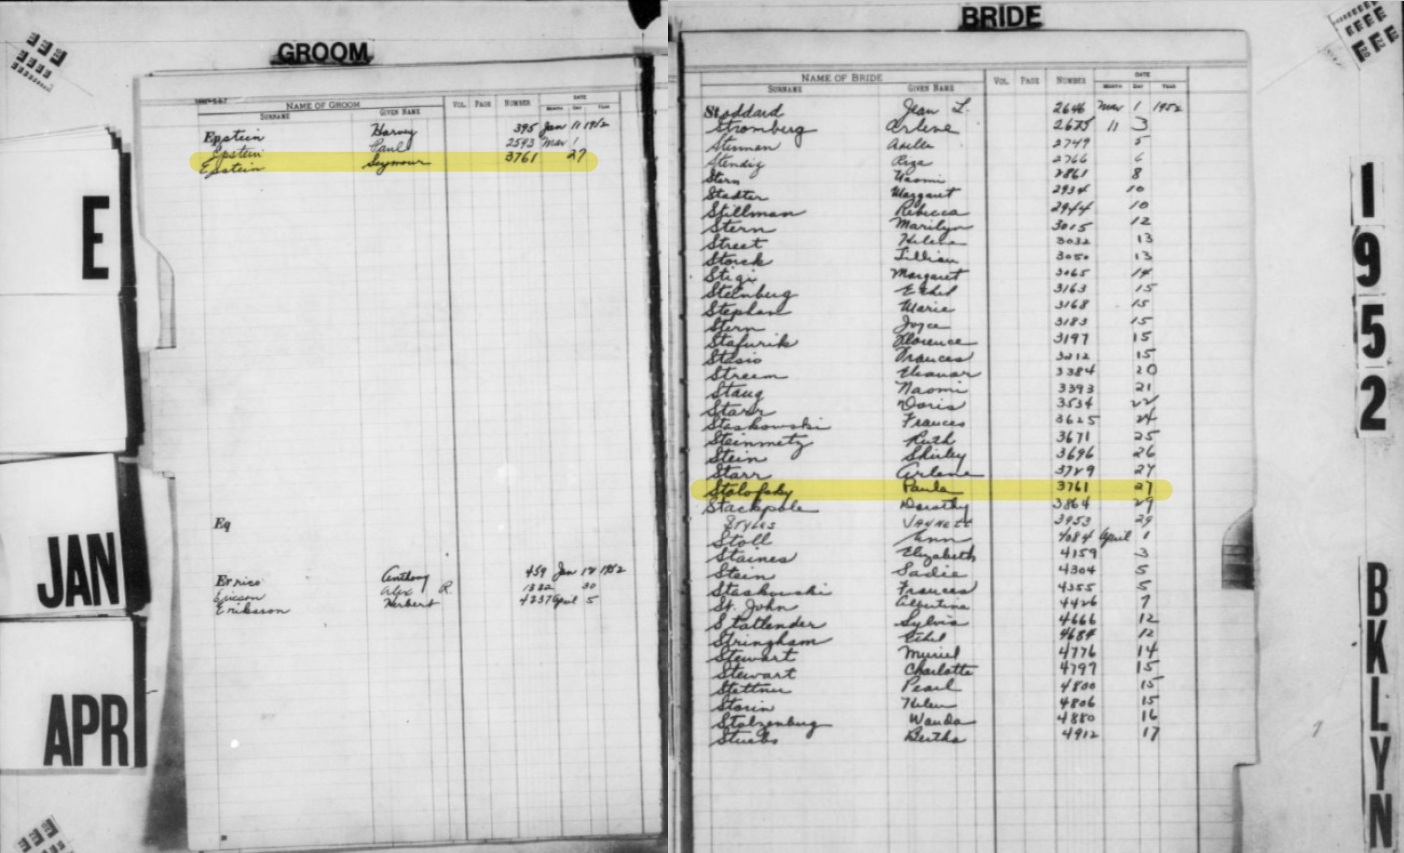 GROOM
NAME OF GROOM VOL. PAGE NUMBER DATE
SURNAME GIVEN NAME MONTH DAY YEAR
Epstein Harvey 395 Jan 11 1952
Epstein Paul 2593 Mar 1
Epstein Seymour 3761 27
E
Eq
Errico Anthony 459 Jan 18 1952
Ericson Alex R. 1322 30
Eriksson Herbert 4237 April 5
JAN
APR
BRIDE
NAME OF BRIDE VOL. PAGE NUMBER DATE
SURNAME GIVEN NAME MONTH DAY YEAR
Stoddard Jean L. 2646 Mar 1 1952
Stromberg Arlene 2675 11 3
2749 5
Stendig 2766 6
Stern Naomi 2861 8
Stadter Margaret 2934 10
Stillman Rebecca 2944 10
Stern Marilyn 3015 12
Street Helen 3032 13
Storck Lillian 3050 13
Stigi Margaret 3065 14
Steinberg Ethel 3163 15
Stephan Marie 3168 15
Stern Joyce 3183 15
Stafurik Florence 3197 15
Stasio Frances 3212 15
Streem Eleanor 3384 20
Staug Naomi 3393 21
Starr Doris 3534 22
Staskowski Frances 3625 24
Steinmetz Ruth 3671 25
Stein Shirley 3696 26
Starr Arlene 3729 27
Stolofsky Paula 3761 27
Stackpole Dorothy 3864 29
Styles 3953 29
Stoll Ann 4084 April 1
Staines Elizabeth 4159 3
Stein Sadie 4304 5
Staskowski Frances 4355 5
St. John Albertina 4426 7
Statlender Sylvia 4666 12
Stringham Ethel 4684 12
Stewart Muriel 4776 14
Stewart Charlotte 4797 15
Stettner Pearl 4800 15
Storin Helen 4806 15
Stolzenburg Wanda 4880 16
Stuebs Bertha 4912 17
1952
BKLYN